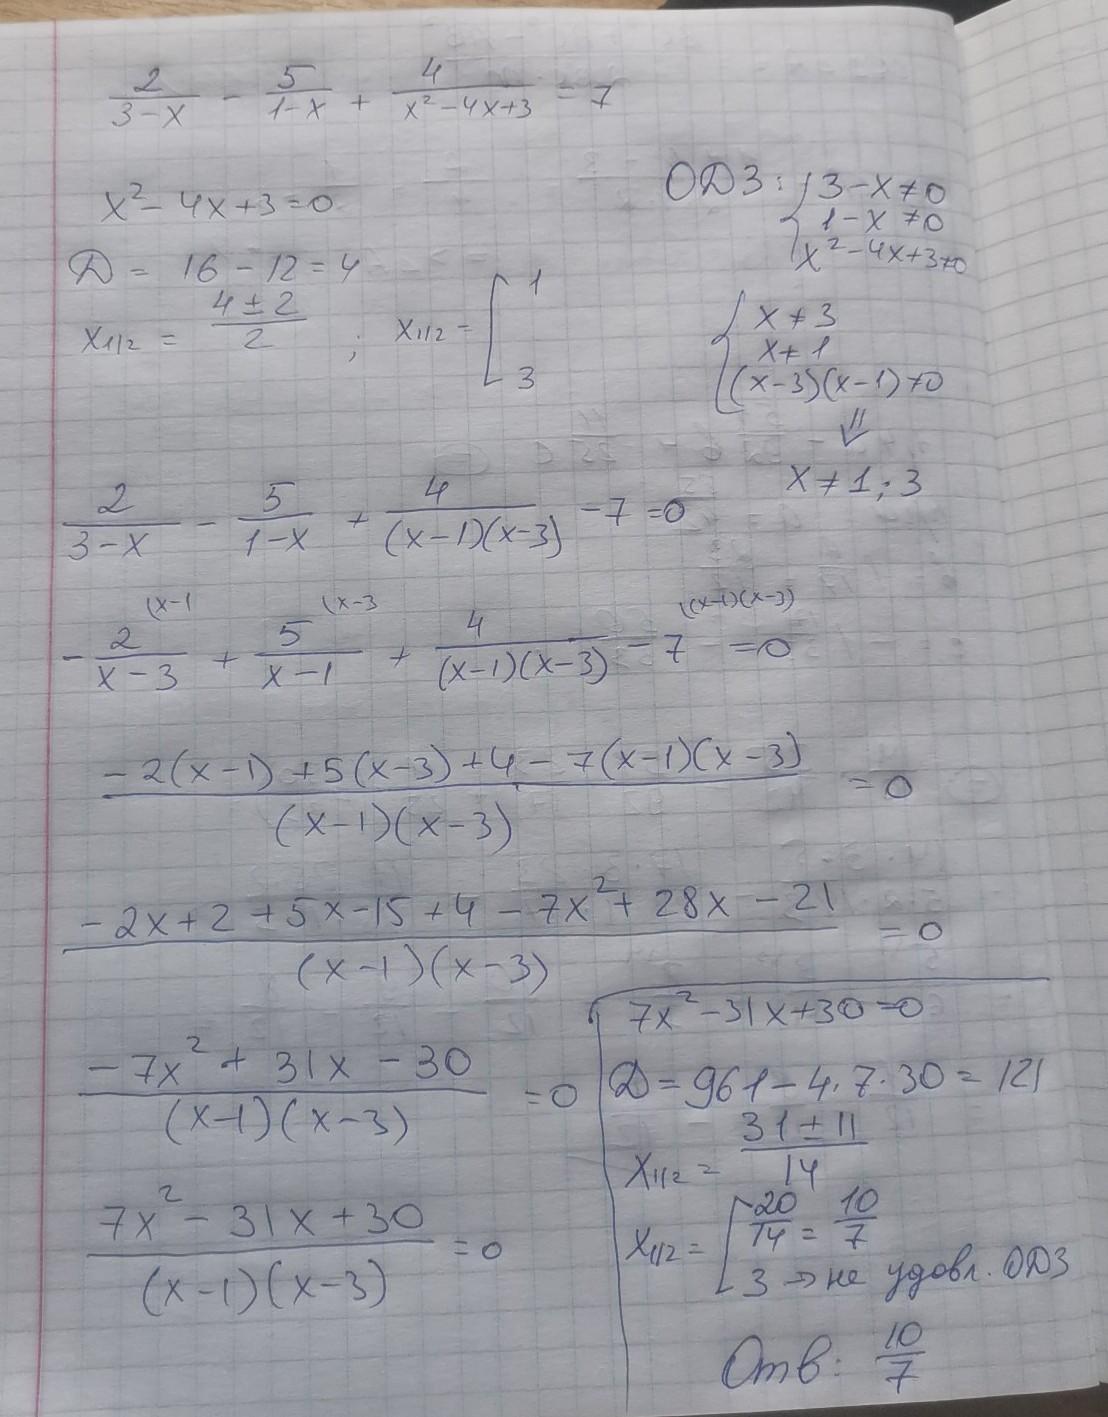 2/(3-x) - 5/(1-x) + 4/(x²-4x+3) = 7
x²-4x+3=0
Д = 16-12=4
x₁/₂ = (4±2)/2 ; x₁/₂ = [ 1
3
ОДЗ: { 3-x≠0
1-x≠0
x²-4x+3≠0
{ x≠3
x≠1
(x-3)(x-1)≠0
⇓
x≠1;3
2/(3-x) - 5/(1-x) + 4/((x-1)(x-3)) - 7 = 0
(x-1 (x-3 ((x-1)(x-3)
- 2/(x-3) + 5/(x-1) + 4/((x-1)(x-3)) - 7 = 0
(-2(x-1)+5(x-3)+4-7(x-1)(x-3))/((x-1)(x-3)) = 0
(-2x+2+5x-15+4-7x²+28x-21)/((x-1)(x-3)) = 0
(-7x²+31x-30)/((x-1)(x-3)) = 0
(7x²-31x+30)/((x-1)(x-3)) = 0
7x²-31x+30=0
Д=961-4·7·30=121
x₁/₂ = (31±11)/14
x₁/₂ = [ 20/14 = 10/7
3 → не удовл. ОДЗ
Отв: 10/7